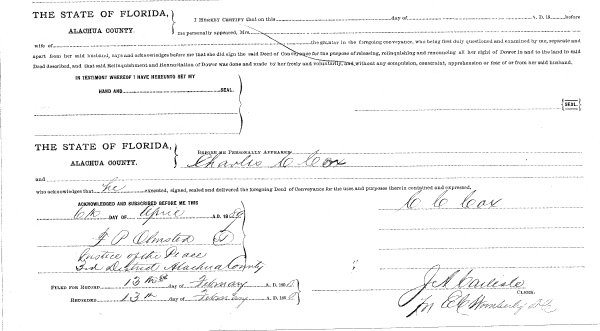 THE STATE OF FLORIDA,
ALACHUA COUNTY.
I HEREBY CERTIFY that on this day of A. D. 18 before
me personally appeared, Mrs
wife of the grantor in the foregoing conveyance, who being first duly questioned and examined by me, separate and
apart from her said husband, says and acknowledges before me that she did sign the said Deed of Conveyance for the purpose of releasing, relinquishing and renouncing all her right of Dower in and to the land in said
Deed described, and that said Relinquishment and Renunciation of Dower was done and made by her freely and voluntarily, and without any compulsion, constraint, apprehension or fear of or from her said husband.
IN TESTIMONY WHEREOF I HAVE HEREUNTO SET MY
HAND AND SEAL.
SEAL.
THE STATE OF FLORIDA,
ALACHUA COUNTY.
BEFORE ME PERSONALLY APPEARED
Charles C Cox
and
who acknowledges that he executed, signed, sealed and delivered the foregoing Deed of Conveyance for the uses and purposes therein contained and expressed.
ACKNOWLEDGED AND SUBSCRIBED BEFORE ME THIS
C C Cox
DAY OF April A.D. 18
F P Olmsted
Justice of the Peace
3rd District Alachua County
FILED FOR RECORD 13th day of February A.D. 18
RECORDED 13th day of February A.D. 18
J A Carlisle
CLERK.
Per E C Wimberly D.C.